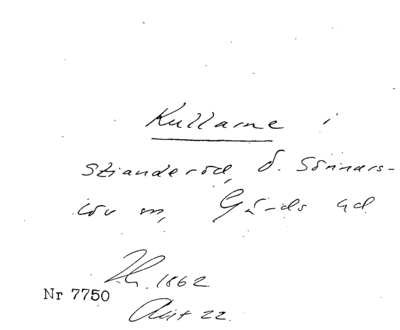 Kullarne i
Stianderöd, Ö. Sönnars-
löv sn, Gärds hd
1862
Nr 7750
22.